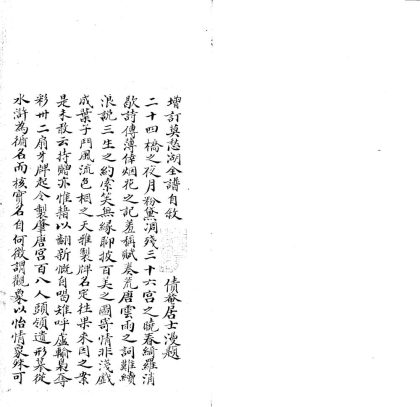 增訂莫愁湖全譜自敘
債菴居士漫題
二十四橋之夜月粉黛凋殘三十六宮之曉春綺羅消
歇詩傳薄倖烟花之記羞稱賦奏荒唐雲雨之詞難續
浪說三生之約索笑無緣聊披百美之圖寄情非淺戲
成葉子鬥風流色相之天雅製牌名定往果來因之案
是未敢云持贈亦惟藉以翻新慨自喝雉呼盧輸梟奪
彩卅二扇牙牌起令製肇唐宮百八人頭領遺形墓從
水滸為衕名而核實名自何徵謂觀象以怡情象殊可